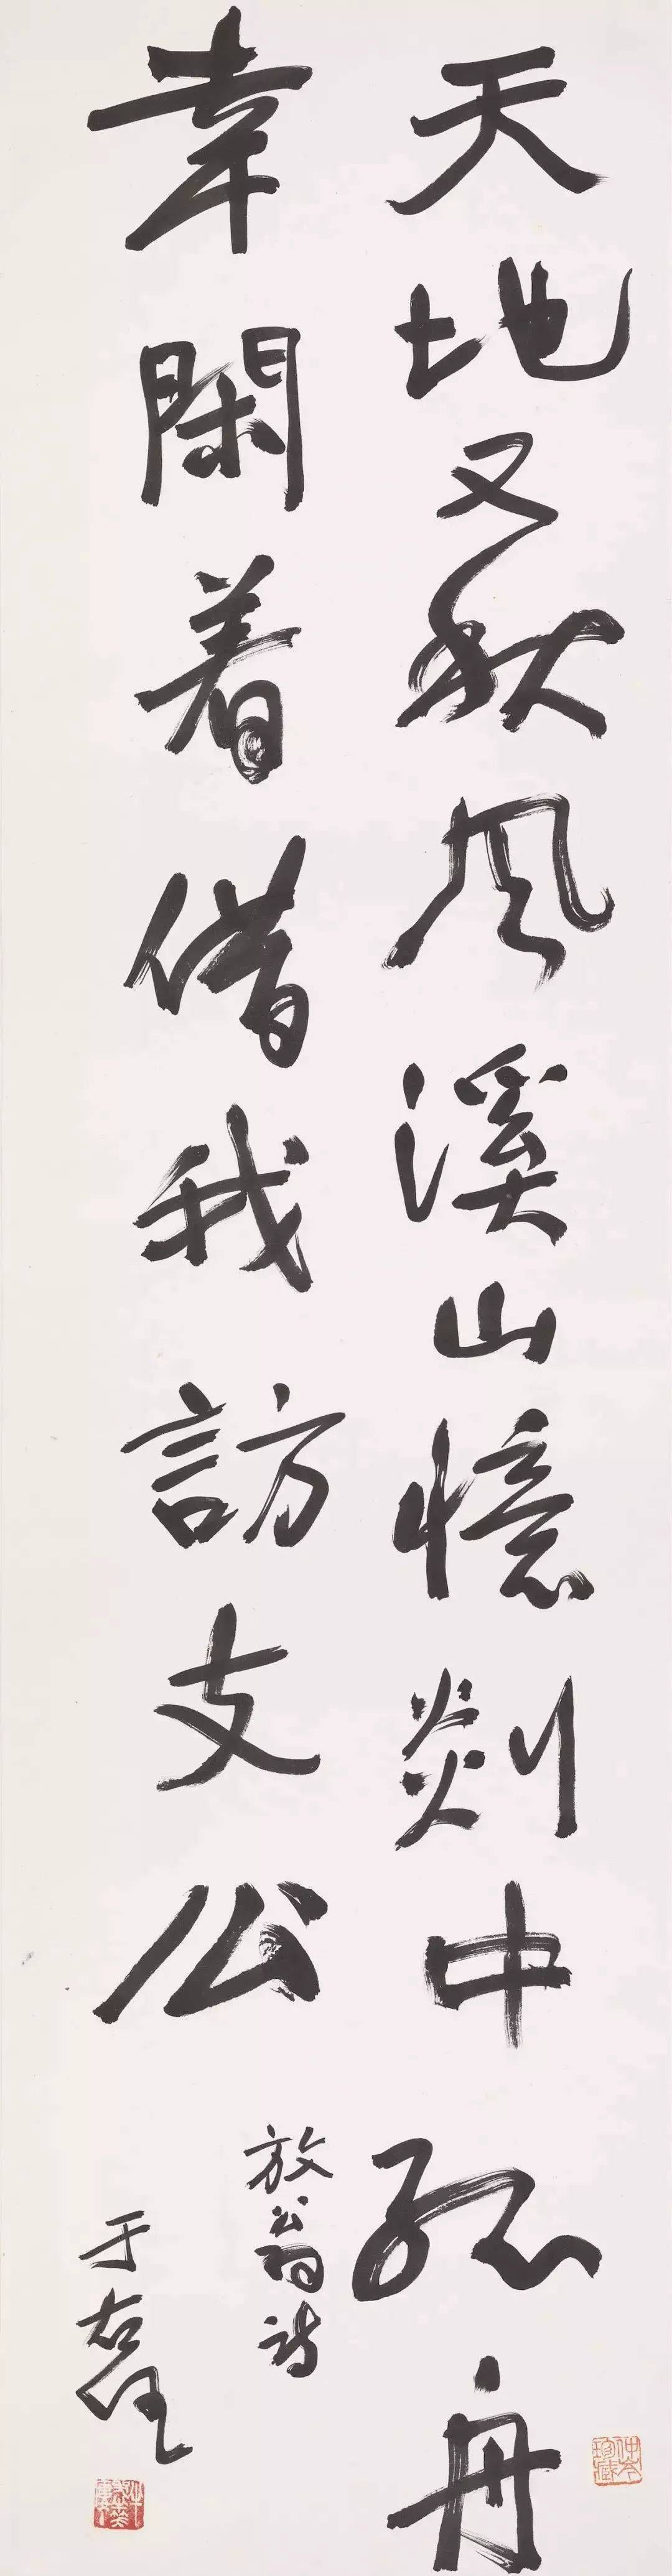 天地又秋風溪山憶剡中孤舟
幸閑着借我訪支公
放翁詩
于右任